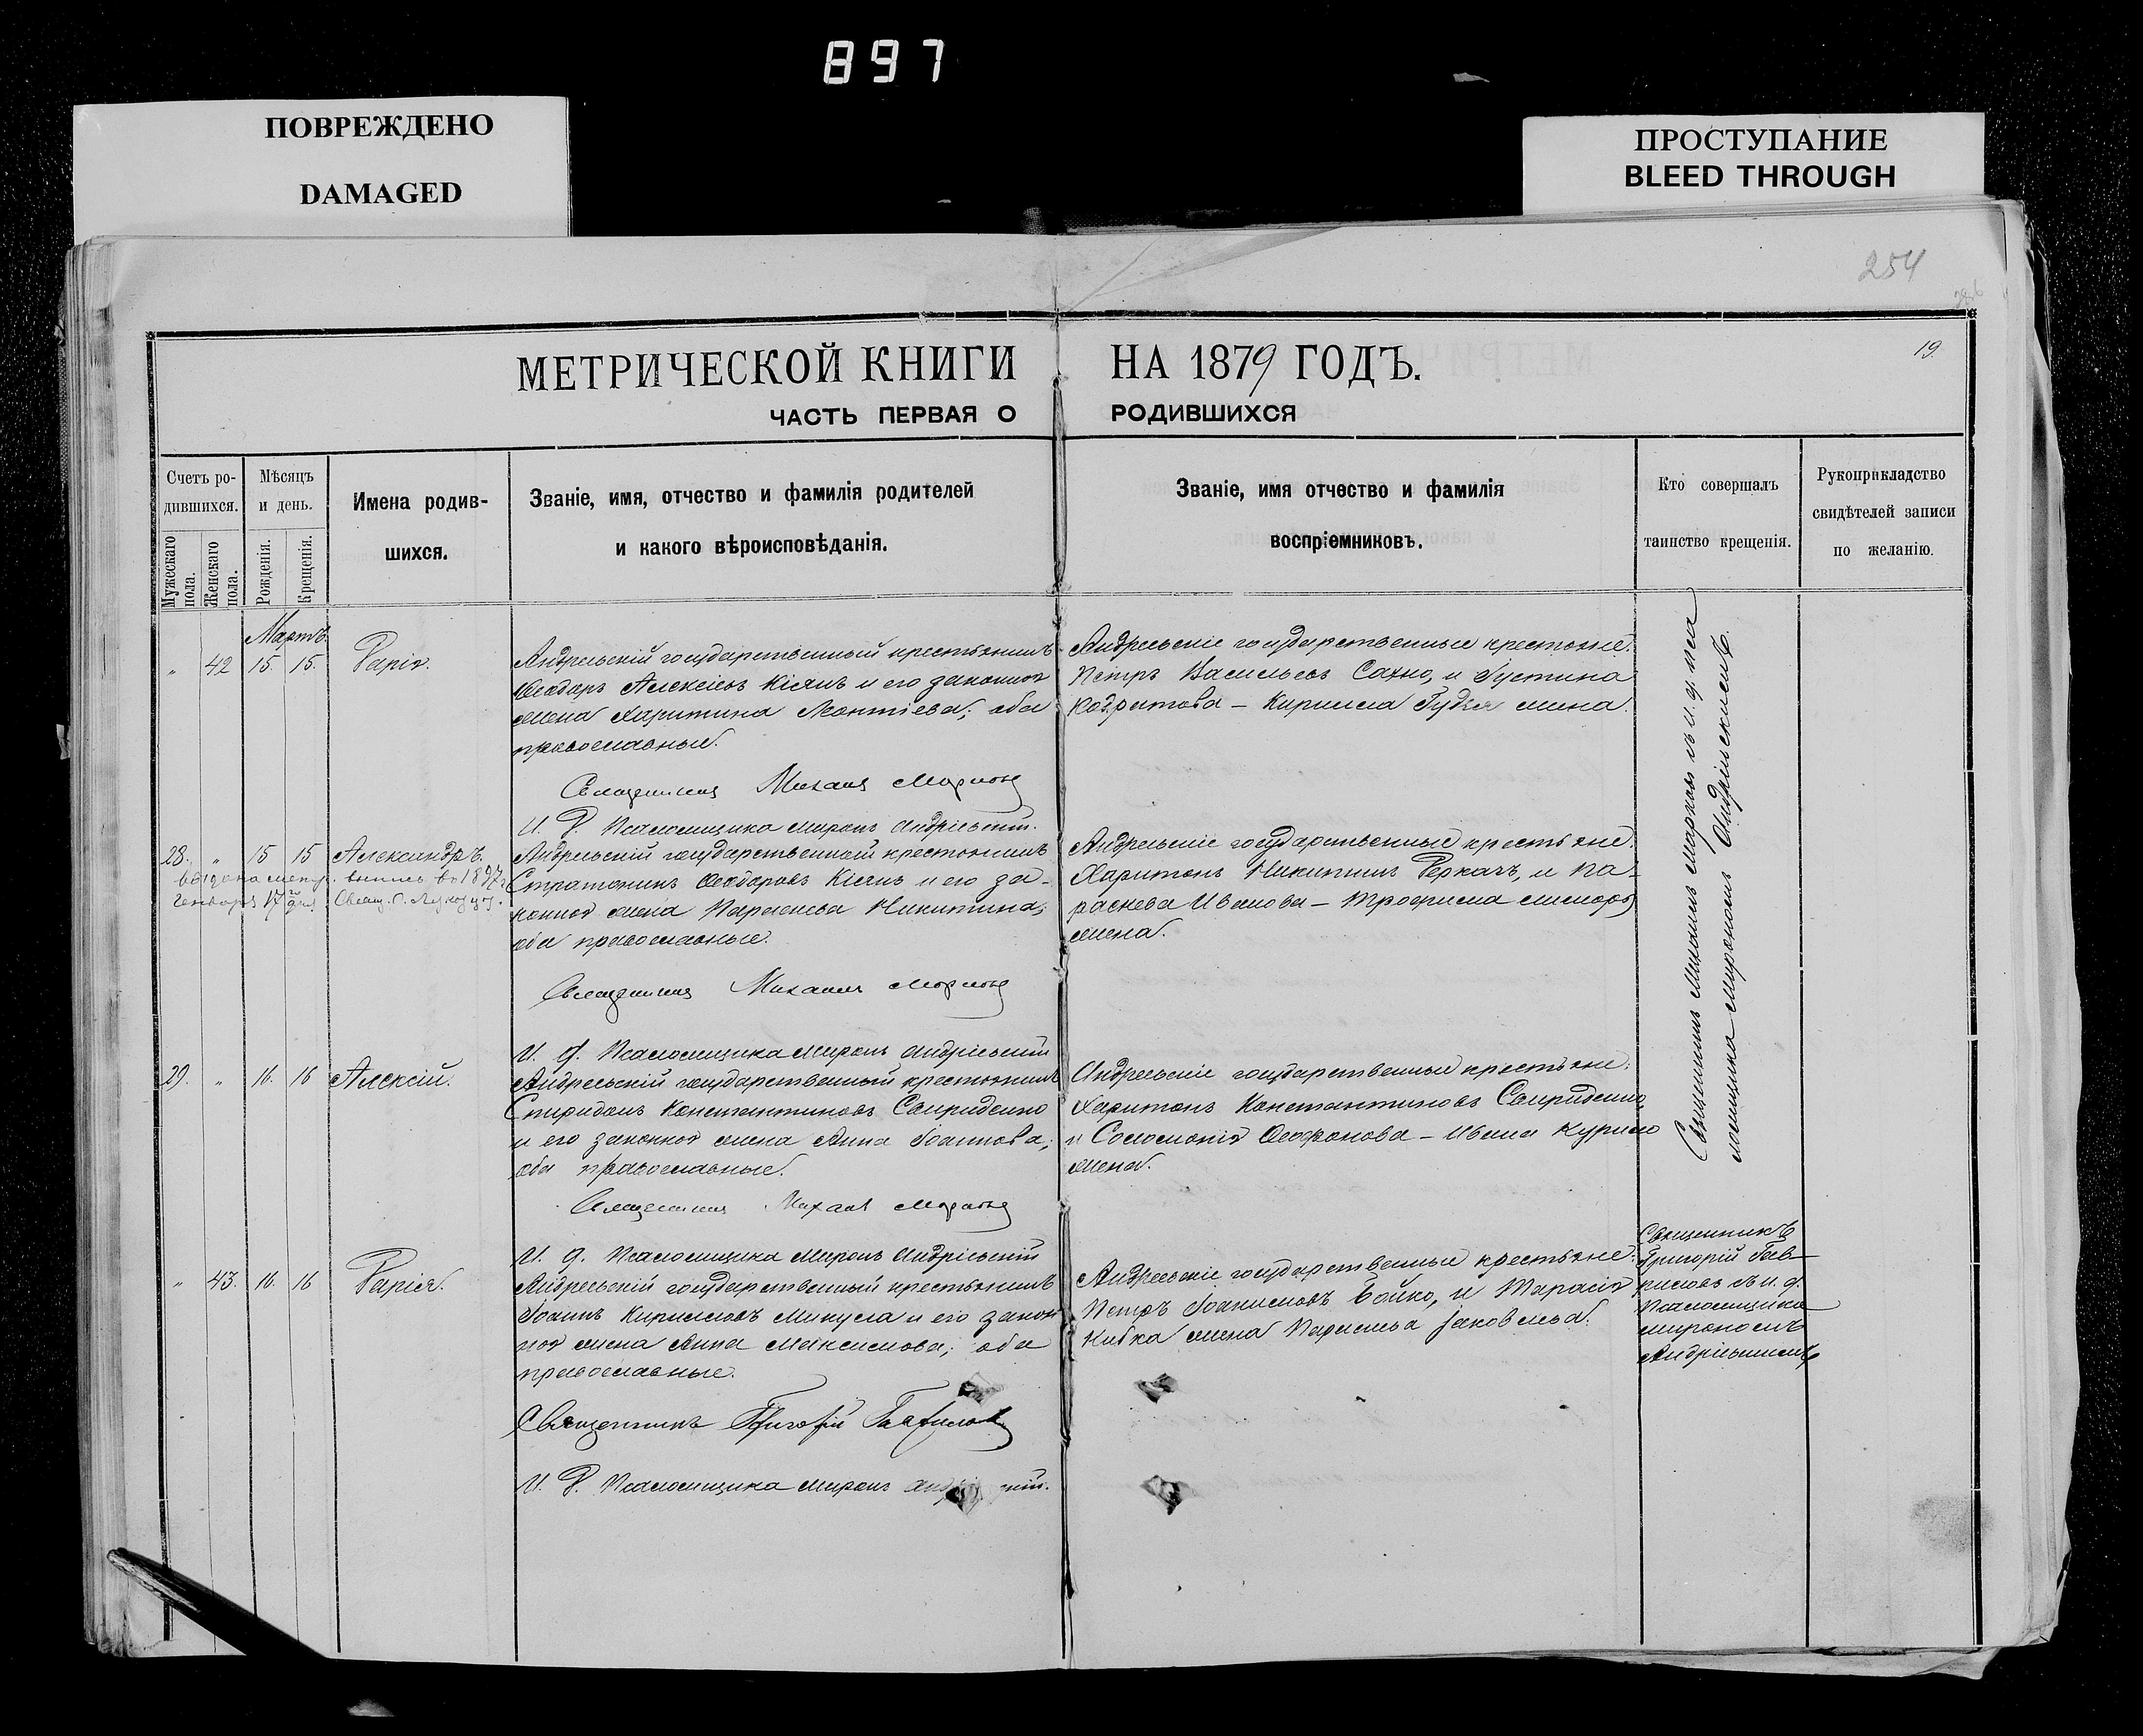 897
ПОВРЕЖДЕНО
DAMAGED
ПРОСТУПАНИЕ
BLEED THROUGH
254
19.
МЕТРИЧЕСКОЙ КНИГИ НА 1879 ГОДЪ.
ЧАСТЬ ПЕРВАЯ О РОДИВШИХСЯ
Счетъ ро-
дившихся.
Мужескаго пола.
Женскаго пола.
Мѣсяцъ
и день.
Рожденія.
Крещенія.
Имена родив-
шихся.
Званіе, имя, отчество и фамилія родителей
и какого вѣроисповѣданія.
Званіе, имя отчество и фамилія
воспріемниковъ.
Кто совершалъ
таинство крещенія.
Рукоприкладство
свидѣтелей записи
по желанію.
Мартъ.
„ 42 15. 15.
Андреевскій государственный крестьянинъ
Ѳеодоръ Алексіевъ Кіянъ и его законная
жена Харитина; оба
православные.
Священникъ Михаилъ
И. д. Псаломщика Миронъ Андріевскій.
Андреевскіе государственные крестьяне:
Петръ Васильевъ Сахно, и Іустина
Кодратова – Кирилла жена.
28. „ 15 15 Александръ.
выдана метр. выпись въ 1897 г.
Генваря 17 дня. Свящ.
Андреевскій государственный крестьянинъ
Стратоникъ Ѳеодоровъ Кіянъ и его за-
конная жена Никитина;
оба православные.
Священникъ Михаилъ
И. д. Псаломщика Миронъ Андріевскій
Андреевскіе государственные крестьяне:
Харитонъ Никитинъ Деркачъ, и Па-
раскева Иванова – Трофима
жена.
29. „ 16. 16 Алексій.
Андреевскій государственный крестьянинъ
Спиридонъ Константиновъ Свириденко
и его законная жена Анна Іоаннова;
оба православные.
Священникъ Михаилъ
И. д. Псаломщика Миронъ Андріевскій
Андреевскіе государственные крестьяне:
Харитонъ Константиновъ Свириденко,
и Соломонія – Ивана Курило
жена.
„ 43. 16. 16
Андреевскій государственный крестьянинъ
Іоаннъ Кирилловъ Микула и его закон
ная жена Анна Максимова; оба
православные.
Священникъ Григорій Гаврилов
И. д. Псаломщика Миронъ
Андреевскіе государственные крестьяне:
Петръ Бойко, и Тарасія
жена Яковлева.
Священникъ Михаилъ съ и. д. пса
ломщика Мирономъ Андріевскимъ.
Священникъ
Григорій Гав-
риловъ съ и. д.
Псаломщика
Мирономъ
Андріевскимъ